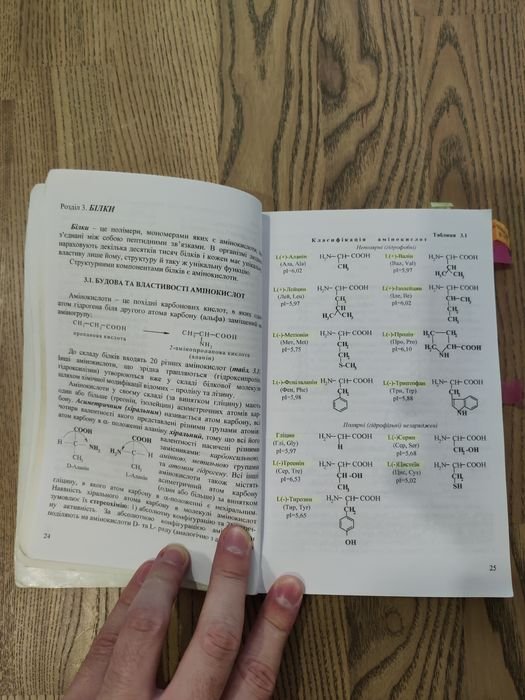 Розділ 3. БІЛКИ
Білки – це полімери, мономерами яких є амінокислоти,
з'єднані між собою пептидними зв'язками. В організмі людини
нараховують декілька десятків тисяч білків і кожен має унікальну
властиву лише йому, структуру й таку ж унікальну функцію.
Структурними компонентами білків є амінокислоти.
3.1. БУДОВА ТА ВЛАСТИВОСТІ АМІНОКИСЛОТ
Амінокислоти – це похідні карбонових кислот, в яких один
атом гідрогена біля другого атома карбону (альфа) заміщений на
аміногрупу:
CH₃—CH₂—COOH
пропанова кислота
CH₃—CH—COOH
NH₂
2-амінопропанова кислота
(аланін)
До складу білків входять 20 різних амінокислот (табл. 3.1)
інші амінокислоти, що зрідка трапляються (гідроксипролін,
гідроксилізин) утворюються вже у складі білкової молекули
шляхом хімічної модифікації відомих – проліну та лізину.
Амінокислоти у своєму складі (за винятком гліцину) мають
один або більше (треонін, ізолейцин) асиметричних атомів кар-
бону. Асиметричним (хіральним) називається атом карбону, всі
чотири валентності якого представлені різними групами атомів
атом карбону в α- положенні аланіну хіральний, тому що всі його
валентності насичені різними
замісниками: карбоксильною,
аміною, метильною групами
та атомом гідрогену. Всі інші
амінокислоти також містять
асиметричний атом карбону
(один або більше) за винятком
COOH
COOH
NH₂
H₂N
CH₃
CH₃
D-Аланін
L-Аланін
гліцину, в якого атом карбону в α-положенні є нехіральним.
Наявність хірального атома карбону в молекулі амінокислот
зумовлює їх стереохімію: 1) абсолютну конфігурацію та 2) оптич-
ну активність. За абсолютною конфігурацією амінокислоти
поділяють на амінокислоти D- та L- ряду (аналогічно з
24
Таблиця 3.1
Класифікація амінокислот
Неполярні (гідрофобні)
L(+)-Аланін
(Ала, Ala)
pI=6,02
H₂N—CH—COOH
CH₃
L(+)-Валін
(Вал, Val)
pI=5,97
H₂N—CH—COOH
CH
H₃C CH₃
L(-)-Лейцин
(Лей, Leu)
pI=5,97
H₂N—CH—COOH
CH₂
CH
H₃C CH₃
L(+)-Ізолейцин
(Іле, Ile)
pI=6,02
H₂N—CH—COOH
CH—CH₃
CH₂
CH₃
L(-)-Метіонін
(Мет, Met)
pI=5,75
H₂N—CH—COOH
CH₂
CH₂
S-CH₃
L(-)-Пролін
(Про, Pro)
pI=6,10
H₂C—CH₂
H₂C CH—COOH
NH
L(-)-Фенілаланін
(Фен, Phe)
pI=5,98
H₂N—CH—COOH
CH₂
L(-)-Триптофан
(Три, Trp)
pI=5,88
H₂N—CH—COOH
CH₂
Полярні (гідрофільні) незаряджені
Гліцин
(Глі, Gly)
pI=5,97
H₂N—CH—COOH
H
L(-)Серин
(Сер, Ser)
pI=5,68
H₂N—CH—COOH
CH₂-OH
L(-)-Треонін
(Тре, Thr)
pI=6,53
H₂N—CH—COOH
CH-OH
CH₃
L(-)-Цистеїн
(Цис, Cys)
pI=5,02
H₂N—CH—COOH
CH₂
SH
L(-)-Тирозин
(Тир, Tyr)
pI=5,65
H₂N—CH—COOH
CH₂
OH
25